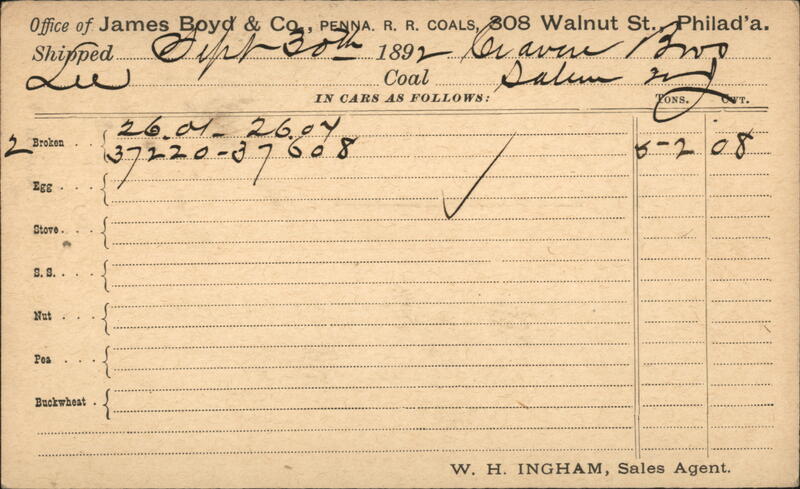 Office of James Boyd & Co., PENNA. R. R. COALS, 308 Walnut St., Philad'a.
Shipped Sept 30th 1892 Craven Bros
Lee Coal Salem NJ
IN CARS AS FOLLOWS: TONS. CWT.
26.01 - 26.07
2 Broken 37220 - 37608 52 08
Egg
Stove
S. S.
Nut
Pea
Buckwheat
W. H. INGHAM, Sales Agent.